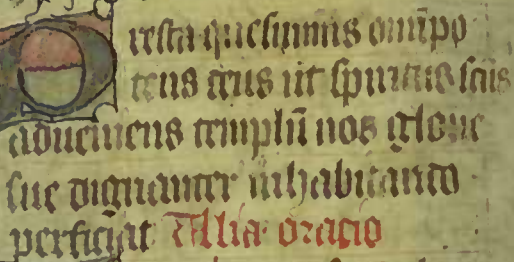 Presta quesumus omnipo
tens deus ut spiritus scūs
adueniens templū nos glorie
sue dignanter inhabitando
perficiat Alia oracio